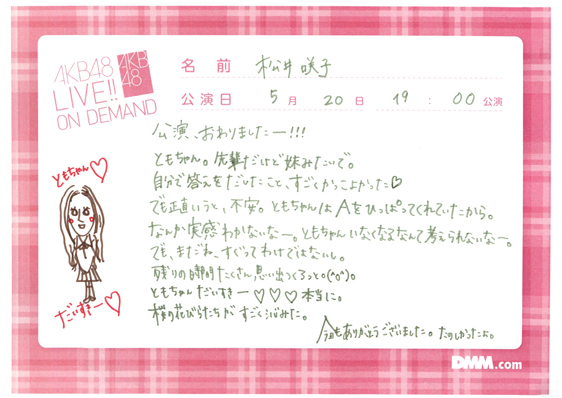 AKB48
LIVE!!
ON DEMAND
AKB
48
名前 松井咲子
公演日 5月 20日 19:00公演
公演、おわりましたー!!!
ともちゃん。先輩だけど妹みたいで。
自分で答えをだしたこと、すごくかっこよかった♡
でも正直いうと、不安。ともちゃんはAをひっぱってくれていたから。
なんか実感わかないなー。ともちゃんいなくなるなんて考えられないなー。
でも、まだね、すぐってわけではないし。
残りの時間たくさん思い出つくろっと。(^o^)。
ともちゃんだいすきー♡♡♡本当に。
桜の花びらたちがすごくしみた。
今日もありがとうございました。たのしかったよ。
ともちゃん♡
だいすきー♡
DMM.com